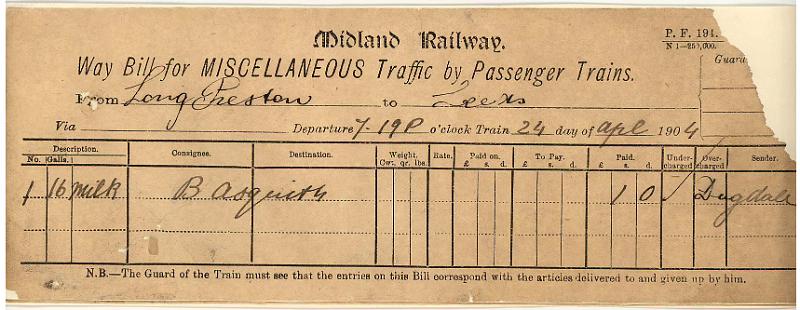 Midland Railway.
P. F. 194.
N 1—250,000.
Way Bill for MISCELLANEOUS Traffic by Passenger Trains.
Guard
From Long Preston to Leeds
Via Departure 7-19 P o'clock Train 24 day of Apl 1904
Description. Consignee. Destination. Weight. Rate. Paid on. To Pay. Paid. Under- Over- Sender.
No. Galls. Cwt. qr. lbs. £ s. d. £ s. d. £ s. d. charged charged
1 16 Milk B Asquith 1 0 Dugdale
N.B.—The Guard of the Train must see that the entries on this Bill correspond with the articles delivered to and given up by him.